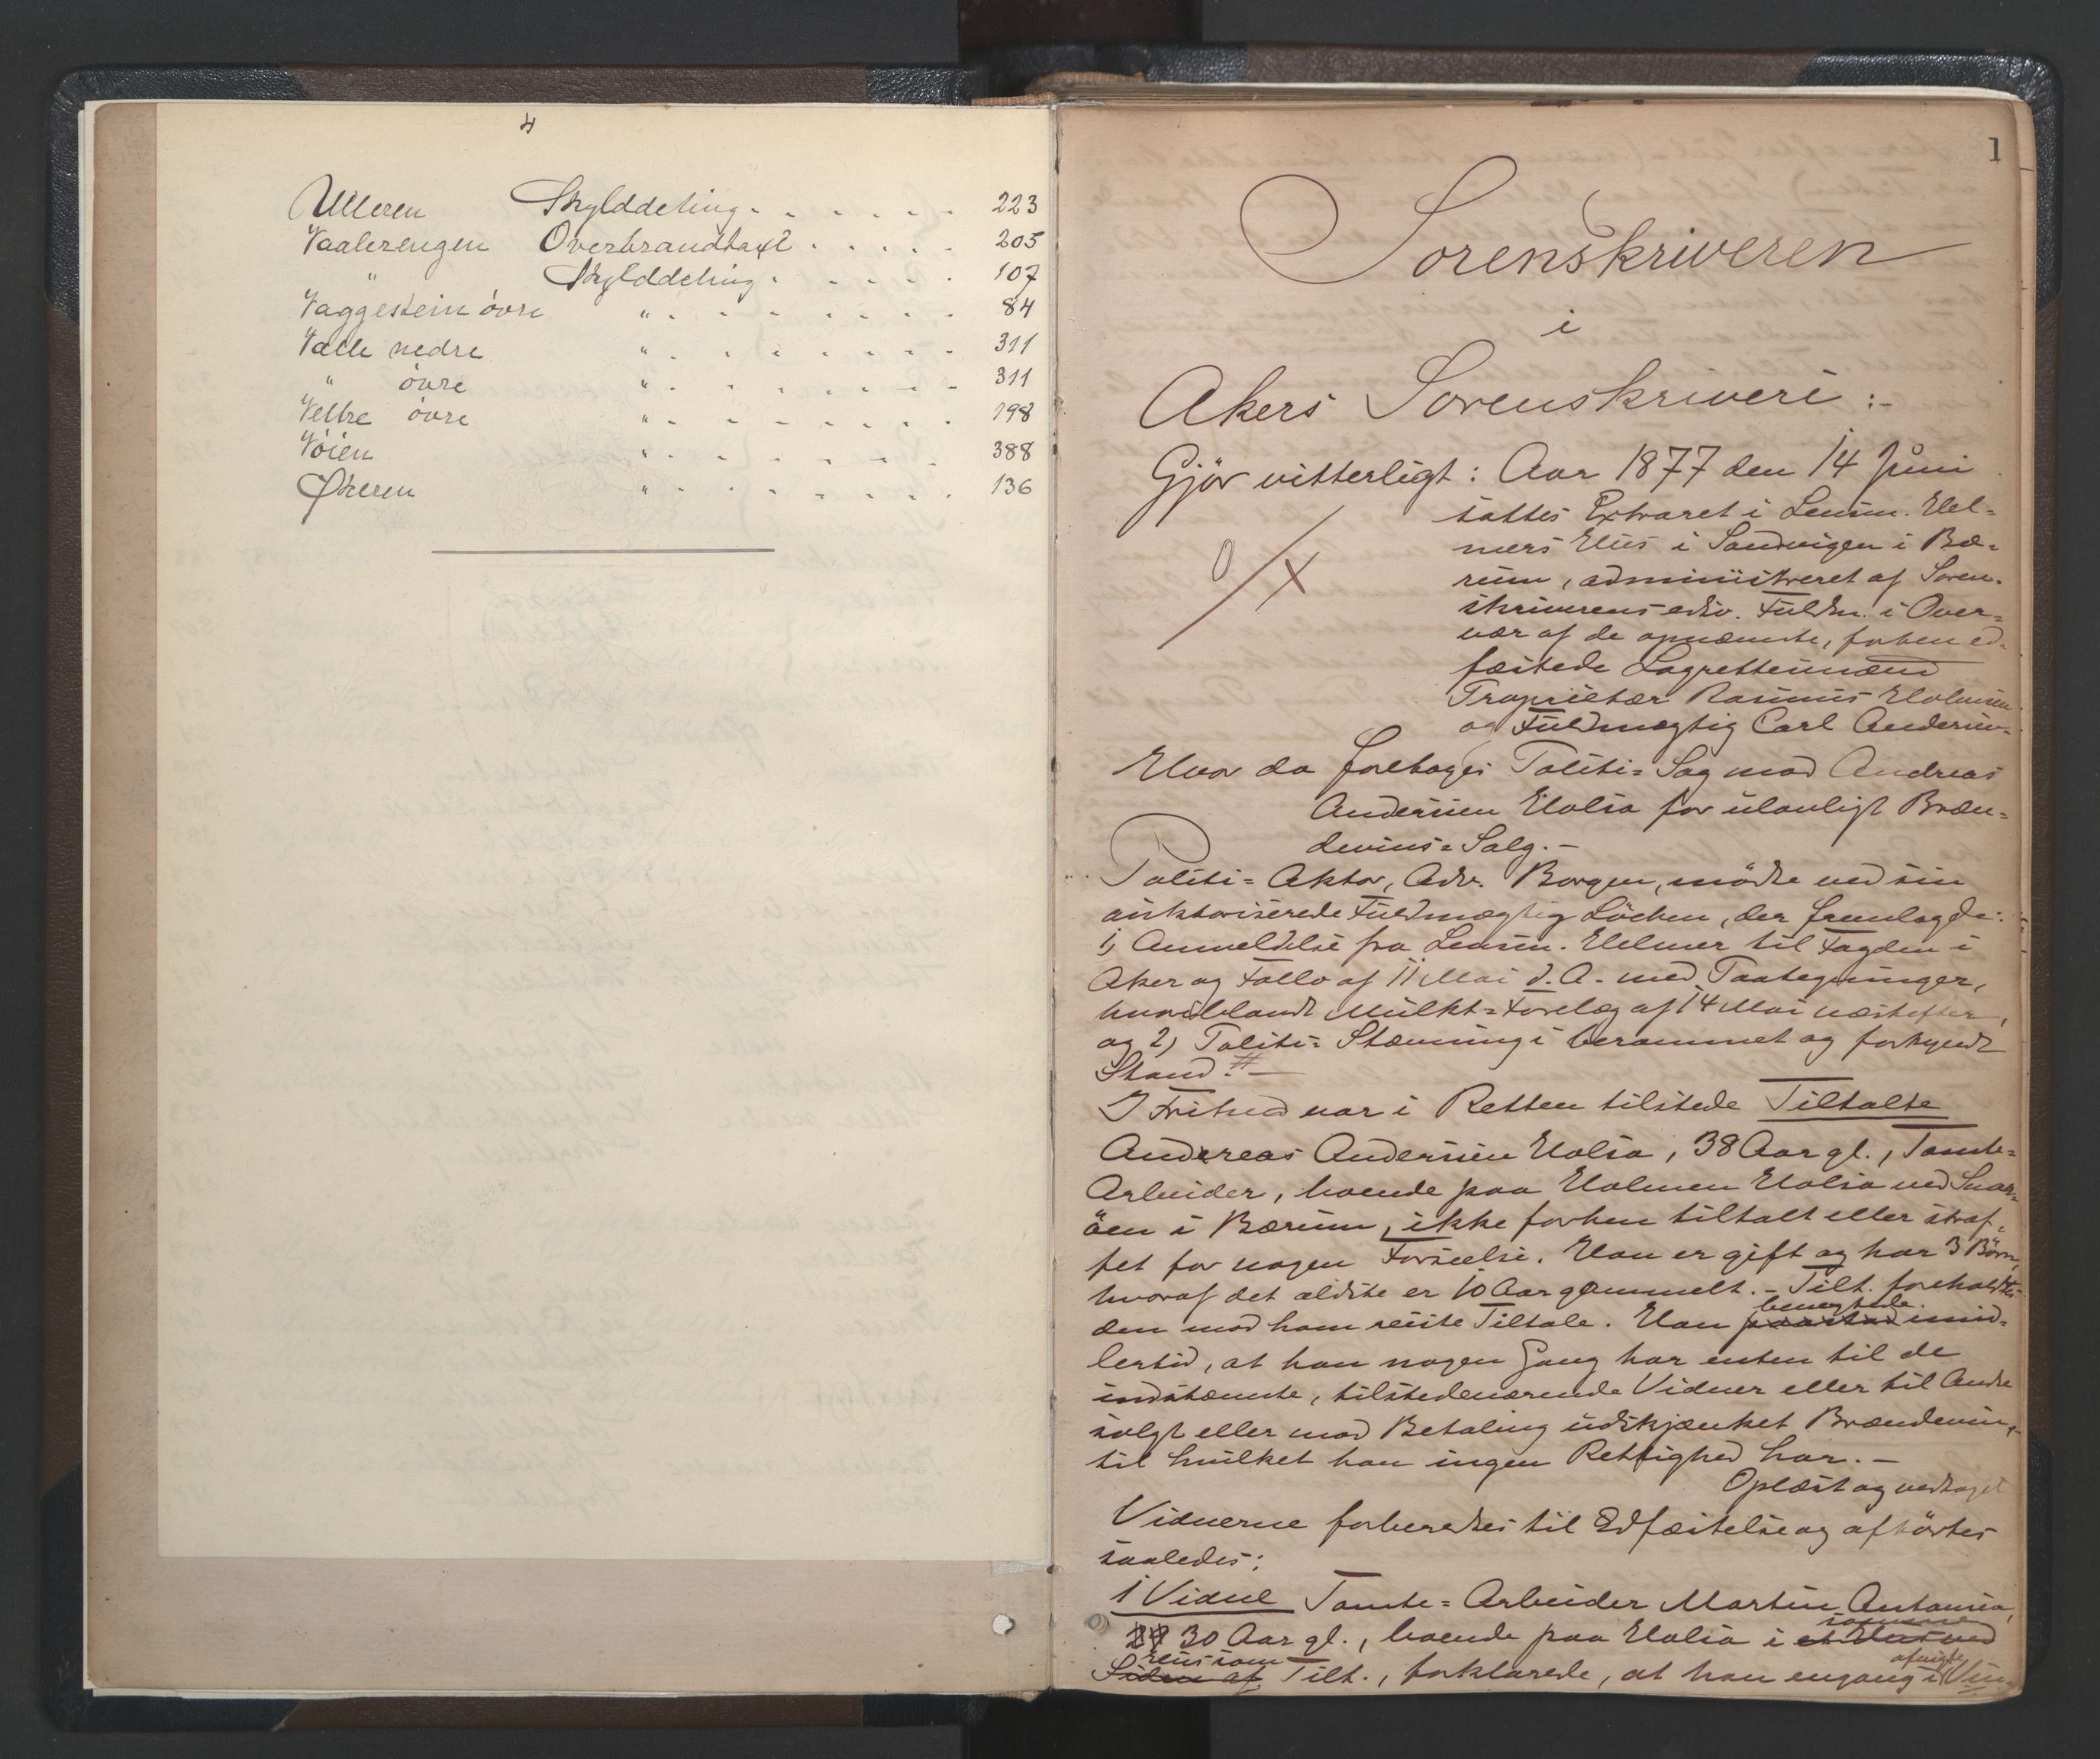 4
Ulleren Skylddeling 223
Vaalerengen Overbrandtaxt 205
" Skylddeling 107
Vaggestein övre " 84
Valle nedre " 311
" övre " 311
Velbre övre " 198
Vöien " 388
Økeren " 136
1
Sorenskriveren
i
Akers Sorenskriveri :-
Gjör vitterligt: Aar 1877 den 14 Juni
sattes Extraret i Lensm. Hel=
mers Hus i Sandvigen i Bæ=
rum, administreret af Soren=
skriverens edsv. Fuldm. i Over=
vær af de opnævnte, forhen ed=
fæstede Lagrettesmænd
Proprietær Rasmus Holmsen
og Fuldmægtig Carl Andersen.
Hvor da foretoges Politi=Sag mod Andreas
Andersen Holsa for ulovligt Bræn=
devins=Salg.-
Politi=Aktor, Adv. Borgen, mödte ved sin
auktoriserede Fuldmægtig Löchen, der fremlagde:
1, Anmeldelse fra Lensm. Helmer til Fogden i
Aker og Follo af 11 Mai d. A. med Paategninger,
hvoriblandt Mulkt=Forelæg af 14 Mai næstefter,
og 2, Politi=Stævning i berammet og forkyndt
Stand.-
I Frihed var i Retten tilstede Tiltalte
Andreas Andersen Holsa, 38 Aar gl., Tomte=
Arbeider, boende paa Holmen Holsa ved Snar=
öen i Bærum, ikke forhen tiltalt eller straf=
fet for nogen Forseelse. Han er gift og har 3 Börn,
hvoraf det ældste er 10 Aar gammelt.- Tilt. foreholdtes
den mod ham reiste Tiltale. Han benegtede imid=
lertid, at han nogen Gang har enten til de
indstævnte, tilstedeværende Vidner eller til Andre
solgt eller mod Betaling udskjænket Brændevin,
til hvilket han ingen Rettighed har.-
Oplæst og vedtaget
Vidnerne forberedtes til Edfæstelse og afhörtes
saaledes:
1 Vidne Tomte=Arbeider Martin Antonsen,
30 Aar gl., boende paa Holsa i samme
Hus som Tilt., forklarede, at han engang i afvigte Vinter